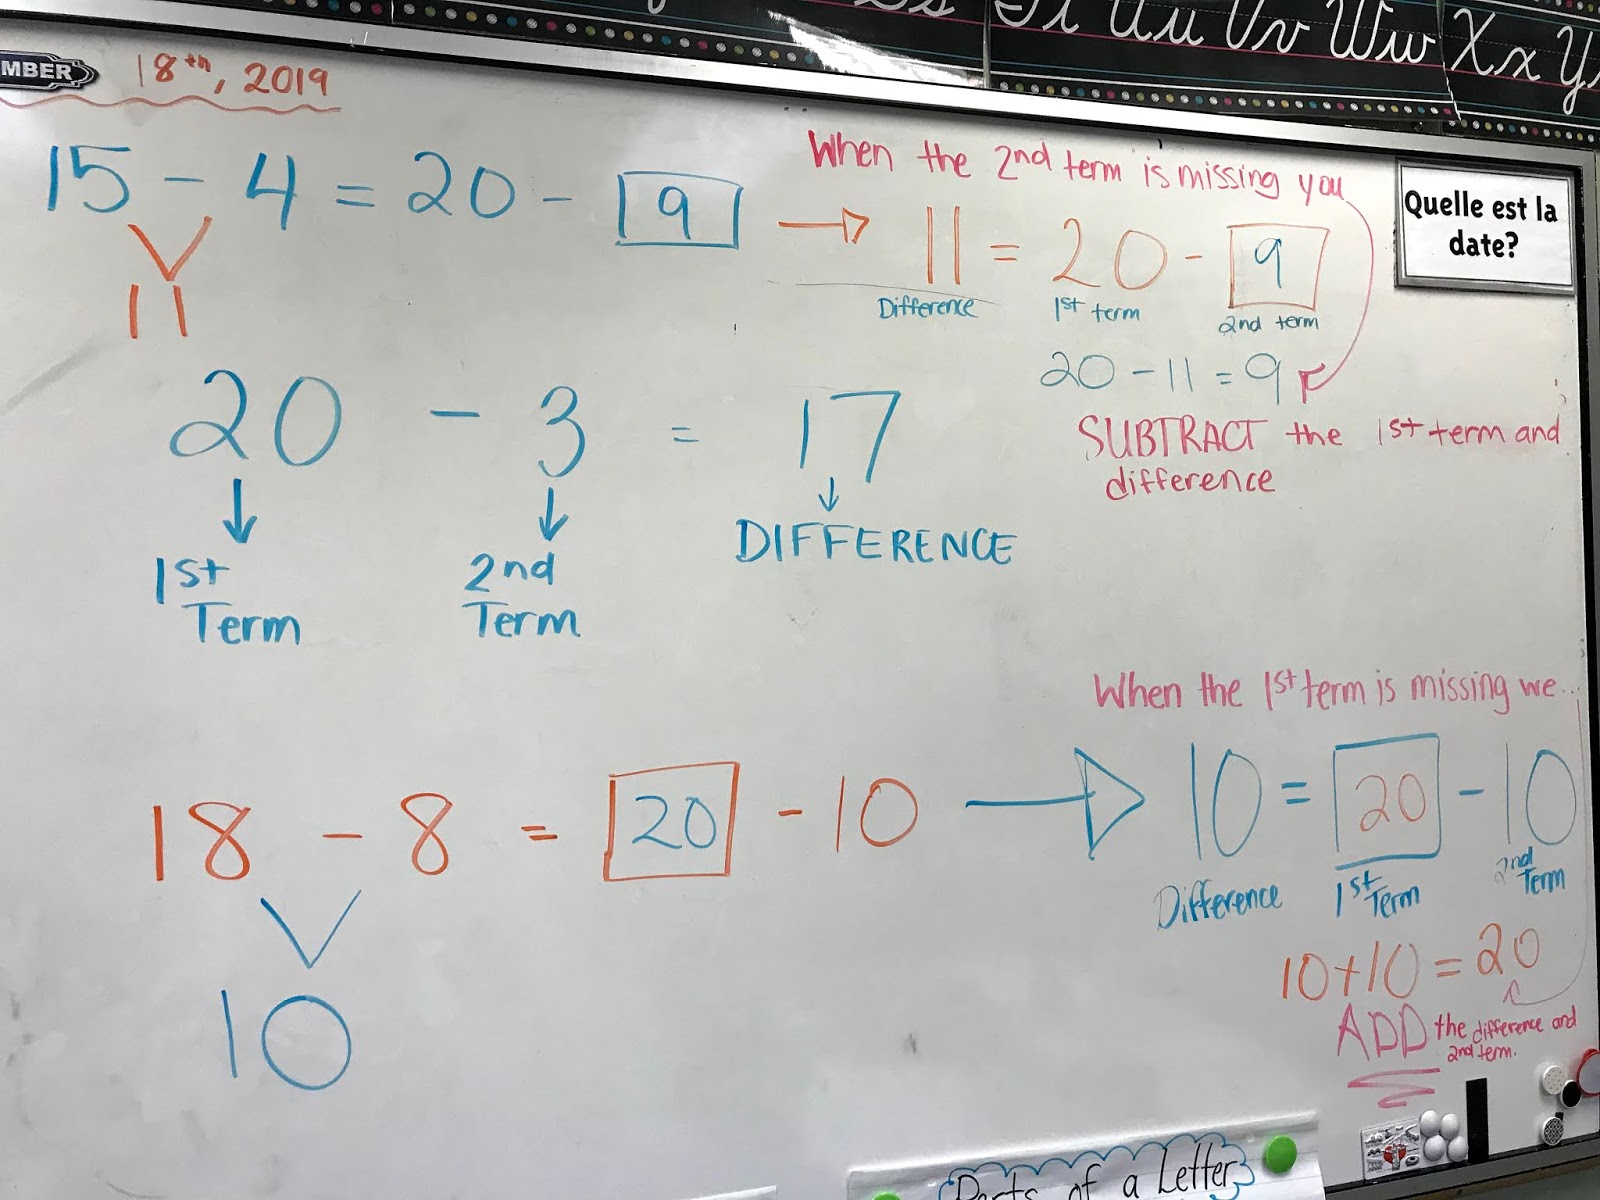 MBER 18th, 2019
Ii Uu Vv Ww Xx Y
15 - 4 = 20 - 9
11
When the 2nd term is missing you
11 = 20 - 9
Difference 1st term 2nd term
20 - 11 = 9
SUBTRACT the 1st term and
difference
Quelle est la
date?
20 - 3 = 17
1st
Term
2nd
Term
DIFFERENCE
18 - 8 = 20 - 10
10
When the 1st term is missing we...
10 = 20 - 10
Difference 1st Term 2nd Term
10+10 = 20
ADD the difference and
2nd term.
Parts of a Letter